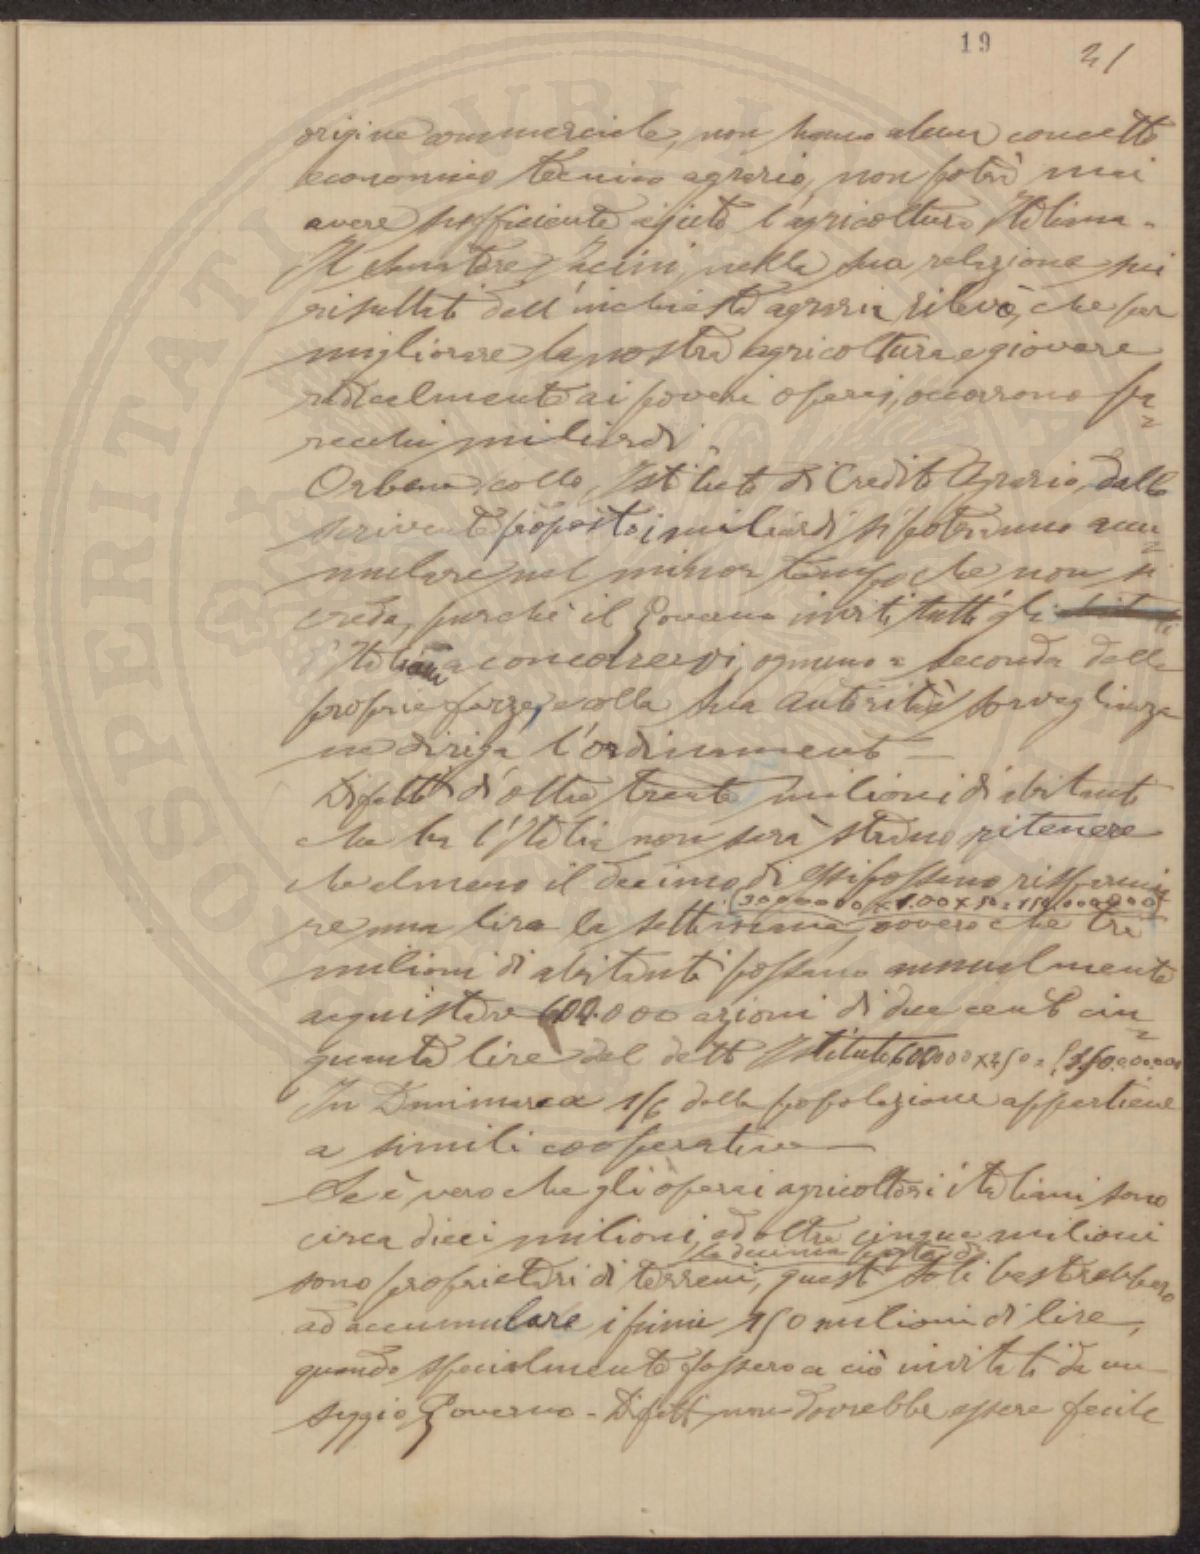 19 21
origine commerciale, non hanno alcun concetto
economico tecnico agrario, non potrà mai
avere sufficiente ajuto l'agricoltura Italiana.
Il Senatore Jacini, nella sua relazione sui
risultati dell'inchiesta agraria rilevò, che per
migliorare la nostra agricoltura e giovare
radicalmente ai poveri operai, occorrono pa=
recchi miliardi.
Orbene, collo Istituto di Credito Agrario, dallo
scrivente proposto, i miliardi si potranno accu=
mulare nel minor tempo che non si
creda, purchè il Governo inviti tutti gli
Italiani a concorrervi, ognuno a seconda delle
proprie forze, e colla sua autorità e sorveglianza
ne diriga l'ordinamento —
Difatti d'oltre trenta milioni di abitanti
che ha l'Italia non sarà strano ritenere
che almeno il decimo di essi possano risparmia
(3000000 x 1.00 x 50 = 150.000.000)
re una lira la settimana, ovvero che tre
milioni di abitanti possano annualmente
acquistare 600.000 azioni di duecento cin=
quanta lire del detto Istituto 600000 x 250 = 150.000.000
In Danimarca 1/6 della popolazione appartiene
a simili cooperative —
Se è vero che gli operai agricoltori italiani sono
circa dieci milioni, ed oltre cinque milioni
la decima parte di
sono proprietari di terreni, questi soli basterebbero
ad accumulare i primi 150 milioni di lire,
quando specialmente fossero a ciò invitati da un
saggio Governo - Difatti non dovrebbe essere facile